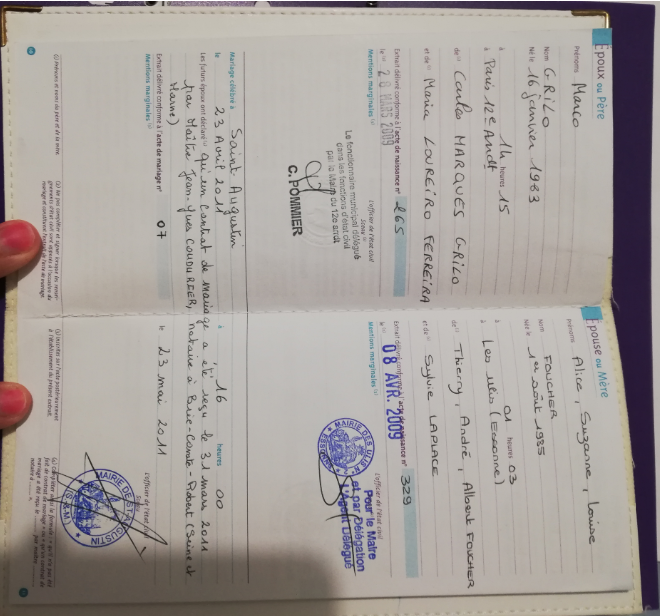 Époux ou Père
Prénoms Marco
Nom GRILO
Né le 16 janvier 1983
à 1h heures 15
à Paris 12e Arrdt
de Carlos MARQUES GRILO
et de Maria LOUREIRO FERREIRA
Extrait délivré conforme à l'acte de naissance n° 265
le 28 MARS 2009
l'officier de l'état civil
Mentions marginales
Le fonctionnaire municipal délégué
dans les fonctions d'état civil
par le Maire du 12e arrdt
C. POMMIER
Épouse ou Mère
Prénoms Alice, Suzanne, Louise
Nom FOUCHER
Née le 1er août 1985
à 01 heures 03
à Les Ulis (Essonne)
de Thierry, André, Albert FOUCHER
et de Sylvie LAPLACE
Extrait délivré conforme à l'acte de naissance n° 329
le 08 AVR. 2009
l'officier de l'état civil
Mentions marginales
Pour le Maire
et par Délégation
l'Agent Délégué
MAIRIE DES ULIS
Mariage célébré à Saint Augustin
le 23 Avril 2011 à 16 heures 00
Les futurs époux ont déclaré qu'un contrat de mariage a été reçu le 31 mars 2011
par Maître Jean-Yves COUDURIER, notaire à Brie-Comte-Robert (Seine et
Marne)
Extrait délivré conforme à l'acte de mariage n° 07 le 23 mai 2011
Mentions marginales
l'officier de l'état civil
MAIRIE DE ST AUGUSTIN
(S.&M.)
(1) Prénoms et noms du père et de la mère.